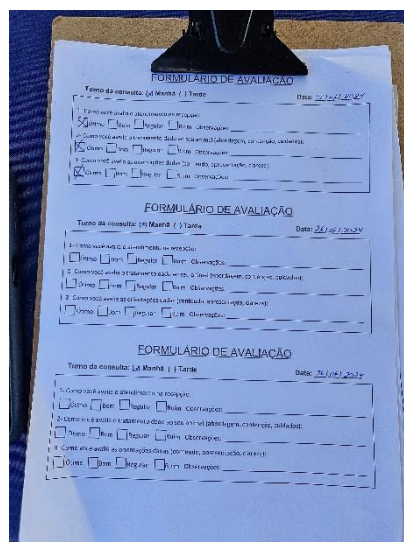 FORMULÁRIO DE AVALIAÇÃO
Turno da consulta: (x) Manhã ( ) Tarde Data: 2024
1- Como você avalia o atendimento na recepção:
Ótimo Bom Regular Ruim Observações:
2- Como você avalia o tratamento dado ao seu animal (abordagem, contenção, cuidados):
Ótimo Bom Regular Ruim Observações:
3- Como você avalia as orientações dadas (conteúdo, apresentação, clareza):
Ótimo Bom Regular Ruim Observações:
FORMULÁRIO DE AVALIAÇÃO
Turno da consulta: (x) Manhã ( ) Tarde Data: 26/06/2024
1- Como você avalia o atendimento na recepção:
Ótimo Bom Regular Ruim Observações:
2- Como você avalia o tratamento dado ao seu animal (abordagem, contenção, cuidados):
Ótimo Bom Regular Ruim Observações:
3- Como você avalia as orientações dadas (conteúdo, apresentação, clareza):
Ótimo Bom Regular Ruim Observações:
FORMULÁRIO DE AVALIAÇÃO
Turno da consulta: (x) Manhã ( ) Tarde Data: 26/06/2024
1- Como você avalia o atendimento na recepção:
Ótimo Bom Regular Ruim Observações:
2- Como você avalia o tratamento dado ao seu animal (abordagem, contenção, cuidados):
Ótimo Bom Regular Ruim Observações:
3- Como você avalia as orientações dadas (conteúdo, apresentação, clareza):
Ótimo Bom Regular Ruim Observações: